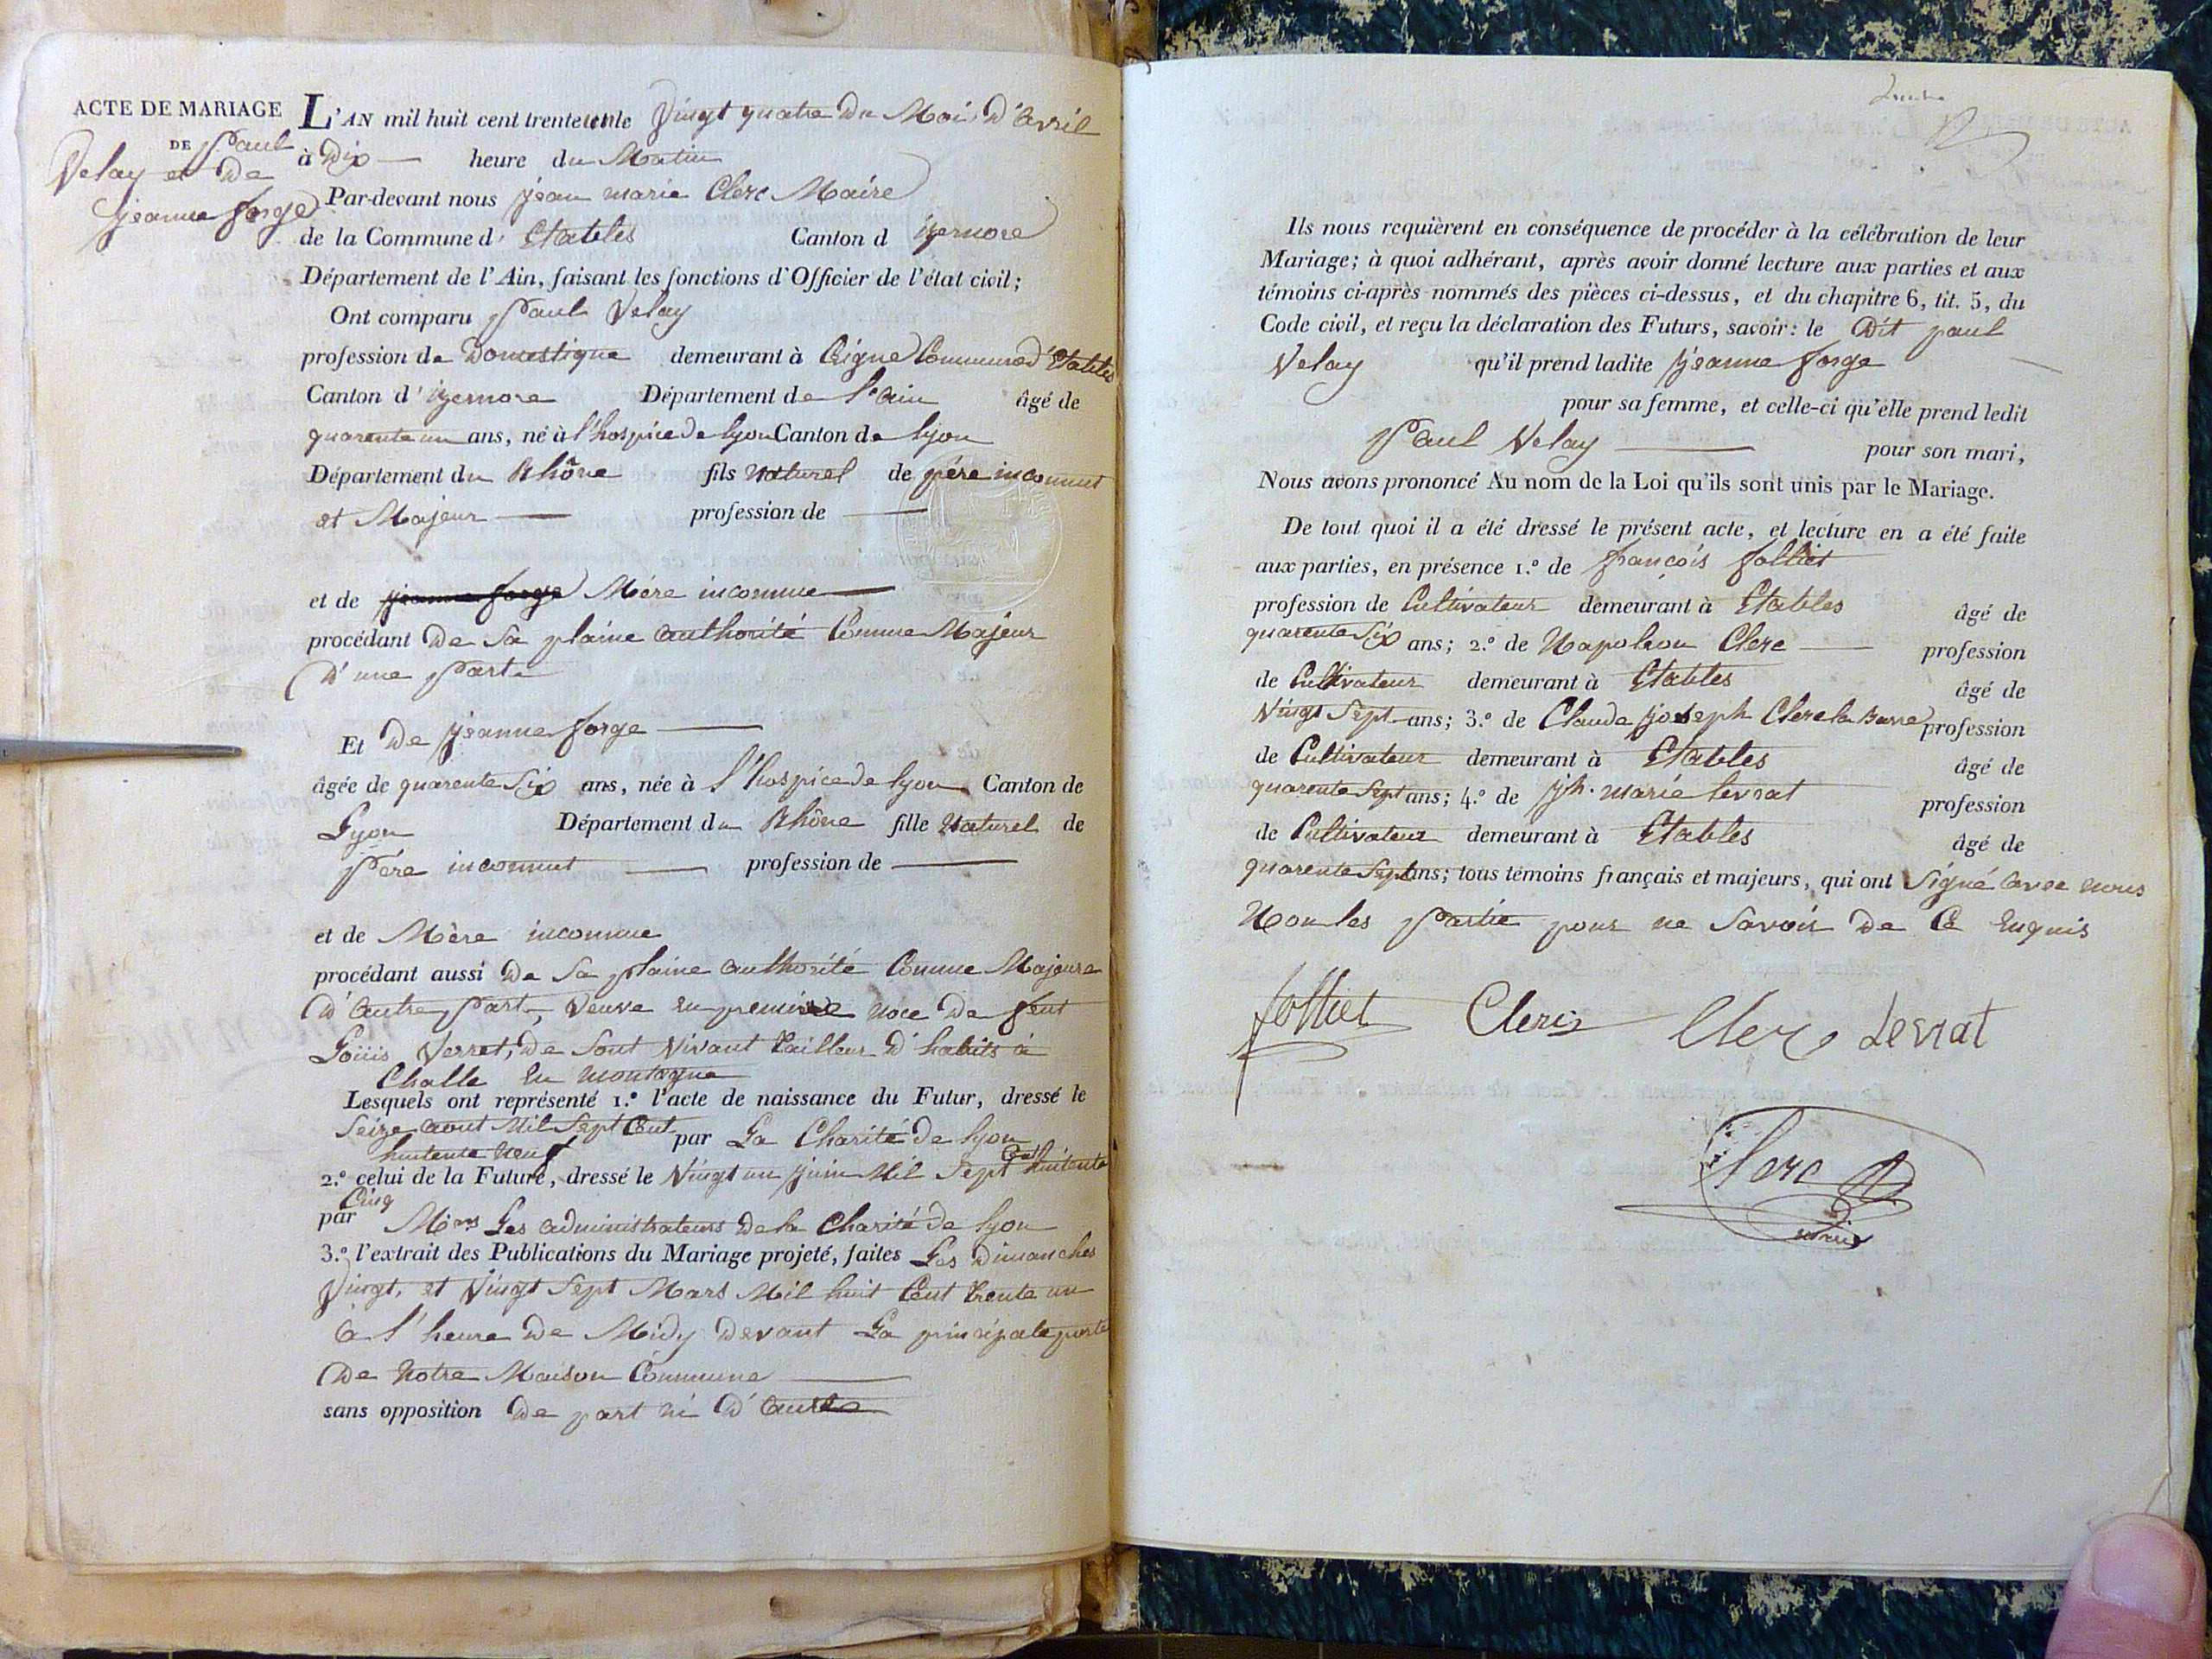 ACTE DE MARIAGE
DE Paul
Velay et De
jeanne forge
L'AN mil huit cent trente un le Vingt quatre Du Moi D'avril
à Dix heure du Matin
Par-devant nous jean marie Clerc Maire
de la Commune d' Etables Canton d izernore
Département de l'Ain, faisant les fonctions d'Officier de l'état civil;
Ont comparu Paul Velay
profession de Domestique demeurant à Commune d'Etables
Canton d' izernore Département de l'ain âgé de
quarente un ans, né à l'hospice de lyon Canton de lyon
Département du Rhône fils Naturel de père inconnut
et Majeur profession de
et de jeanne forge Mère inconnue
procédant De Sa plaine authorité Comme Majeur
D'une part
Et De jeanne forge
âgée de quarente Six ans, née à l'hospice de lyon Canton de
Lyon Département du Rhône fille Naturel de
Père inconnut profession de
et de Mère inconnue
procédant aussi De Sa plaine authorité Comme Majeure
D'autre part, Veuve en premiere noce De feut
Loüis Verret, De Sont Vivant tailleur D'habits à
Challe En Montagne
Lesquels ont représenté 1.º l'acte de naissance du Futur, dressé le
Seize aout Mil Sept Cent
huitente neuf par La Charité de lyon
2.º celui de la Future, dressé le Vingt un juin Mil Sept Cent huitente
Cinq
par Mrs Les administrateurs De la Charité de lyon
3.º l'extrait des Publications du Mariage projeté, faites Les Dimanches
Vingt, et Vingt Sept Mars Mil huit Cent trente un
à l'heure De Midy Devant La principale porte
De Notre Maison Commune
sans opposition De part ni D'autre
Ils nous requièrent en conséquence de procéder à la célébration de leur
Mariage; à quoi adhérant, après avoir donné lecture aux parties et aux
témoins ci-après nommés des pièces ci-dessus, et du chapitre 6, tit. 5, du
Code civil, et reçu la déclaration des Futurs, savoir: le Dit paul
Velay qu'il prend ladite jeanne forge
pour sa femme, et celle-ci qu'elle prend ledit
Paul Velay pour son mari,
Nous avons prononcé Au nom de la Loi qu'ils sont unis par le Mariage.
De tout quoi il a été dressé le présent acte, et lecture en a été faite
aux parties, en présence 1.º de françois folliet
profession de Cultivateur demeurant à Etables âgé de
quarente Six ans; 2.º de Napoleon Clerc profession
de Cultivateur demeurant à Etables âgé de
Vingt Sept ans; 3.º de Claude joseph Clerc la Barre profession
de Cultivateur demeurant à Etables âgé de
quarente Sept ans; 4.º de jh. marie levrat profession
de Cultivateur demeurant à Etables âgé de
quarente Sept ans; tous témoins français et majeurs, qui ont Signé avec nous
Non les Partie pour ne Savoir De Ce Enquis
folliet Clerc Clerc Levrat
Clerc
maire